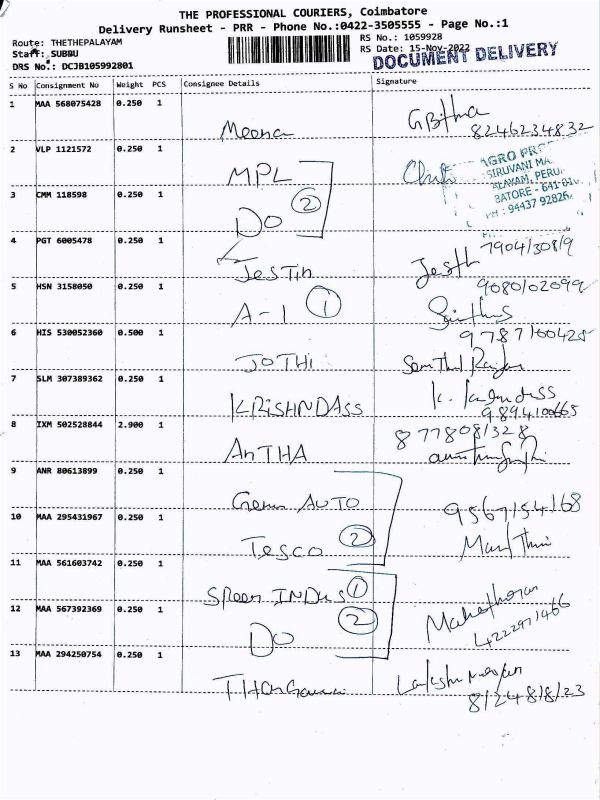 THE PROFESSIONAL COURIERS, Coimbatore
Delivery Runsheet - PRR - Phone No.:0422-3505555 - Page No.:1
Route: THETHEPALAYAM
RS No.: 1059928
Staff: SUBBU
RS Date: 15-Nov-2022
DRS No.: DCJB105992801
DOCUMENT DELIVERY
S No Consignment No Weight PCS Consignee Details Signature
1 MAA 568075428 0.250 1
Meena
8246234832
2 VLP 1121572 0.250 1
MPL
AGRO
SIRUVANI
PERU
BATORE - 641
PH : 94437 92826
3 CMM 118598 0.250 1
DO 2
4 PGT 6005478 0.250 1
7904130819
JESTIN
Jestin
5 HSN 3158050 0.250 1
9080102099
A-1 1
6 HIS 530052360 0.500 1
9787160425
JOTHI
7 SLM 307389362 0.250 1
KRISHNDASS
9894100665
8 IXM 502528844 2.900 1
8778081328
AnTHA
9 ANR 80613899 0.250 1
Gem AUTO
9567154168
10 MAA 295431967 0.250 1
TESCO 2
11 MAA 561603742 0.250 1
INDUS 1
12 MAA 567392369 0.250 1
DO 2
4222971466
13 MAA 294250754 0.250 1
8124818123